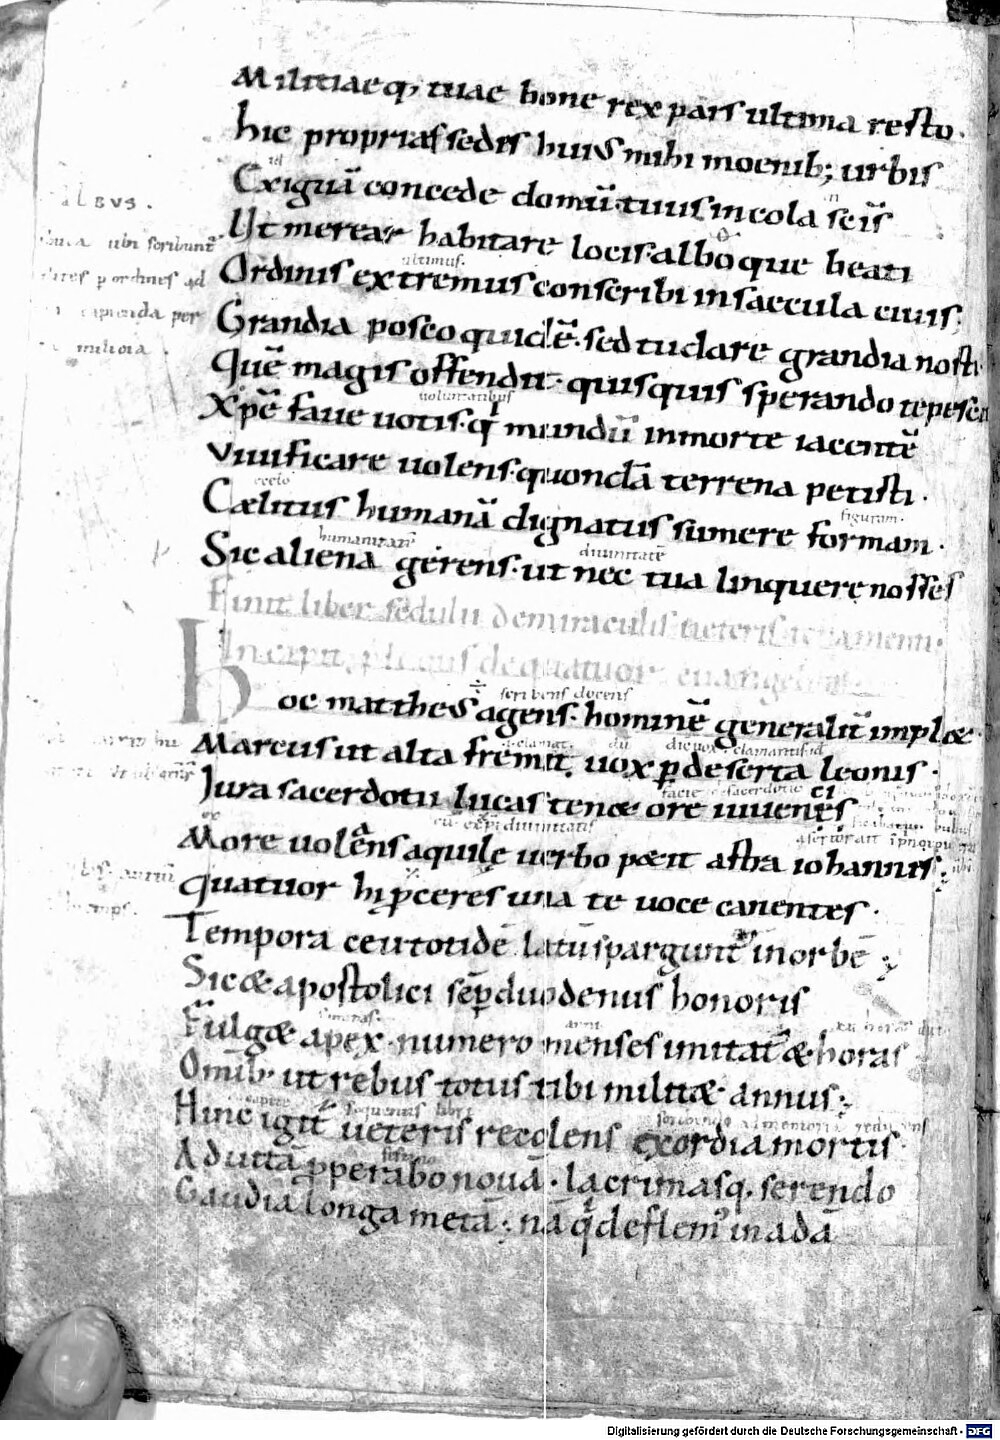 Militiaeq; tuae bone rex pars ultima resto.
hic proprias sedis huius mihi moenib; urbis
Exiguā concede domū. tuus incola scis
Ut merear habitare locis. alboque beati
Ordinis extremus conscribi in saecula civis;
Grandia posco quidē. sed tu dare grandia nosti
Quē magis offendit. quisquis sperando tepesc
Xpē fave votis. qi mundū in morte iacentē
vivificare volens. quondā terrena petisti.
Caelitus humanā dignatus sumere formam.
Sic aliena gerens. ut nec tua linquere nosses
Finit liber sedulii de miraculis veteris testamenti.
Incipit de quatuor evangeli
Hoc mattheus agens. hominē generalit implæ
Marcus ut alta fremit. vox p deserta leonis.
Jura sacerdotii lucas tenæ ore iuvenci
More volans aquilę verbo pætit astra iohannis;
Quatuor hi pceres una te voce canentes.
Tempora ceu totidē latū sparguntr in orbē;
Sic æ apostolici semp duodenus honoris
Fulgæ apex. numero menses imitatr æ horas
Omib. ut rebus totus tibi militæ annus;
Hinc igitr veteris recolens exordia mortis.
Ad vitā pperabo novā. lacrimasq. serendo
Gaudia longa metā; nā qi deflem' in adā
albus.
ubi scribunt
p ordines ad
capienda per
militia.
ultimus.
voluntatibus
celo
figuram.
humanitatē
divinitatē
scribens docens
clamantis id
facie sacerdotio
divinitatis
anni
sequentis libri